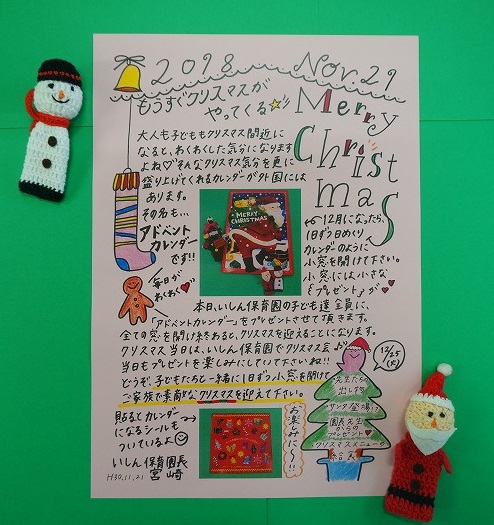 2018 Nov.29
もうすぐクリスマスが
やってくる
Merry
Christ
mas
大人も子どももクリスマス間近に
なると、わくわくした気分になります
よね♡そんなクリスマス気分を更に
盛り上げてくれるカレンダーが外国には
あります。
その名も…
アドベント
カレンダー
です!!
MERRY
CHRISTMAS
←12月になったら、
1日ずつ日めくり
カレンダーのように
小窓を開けて下さい。
小窓には小さな
プレゼントが♡
毎日が
わくわく♡
本日、いしん保育園の子ども達全員に、
「アドベントカレンダー」をプレゼントさせて頂きます。
全ての窓を開け終わると、クリスマスを迎えることになります。
クリスマス当日は、いしん保育園でクリスマス会♪
当日もプレゼントを楽しみにしていて下さいね!!
どうぞ、子どもたちと一緒に1日ずつ小窓を開けて
ご家族で素敵なクリスマスを迎えて下さい。
12/25
(火)
先生たちの
出しもの
サンタ登場!?
園長先生
からの
プレゼント♡
クリスマスメニューの
給食
貼るとカレンダー→
になるシールも
ついているよ
お楽しみに〜!!
いしん保育園長
宮崎
H30.11.21